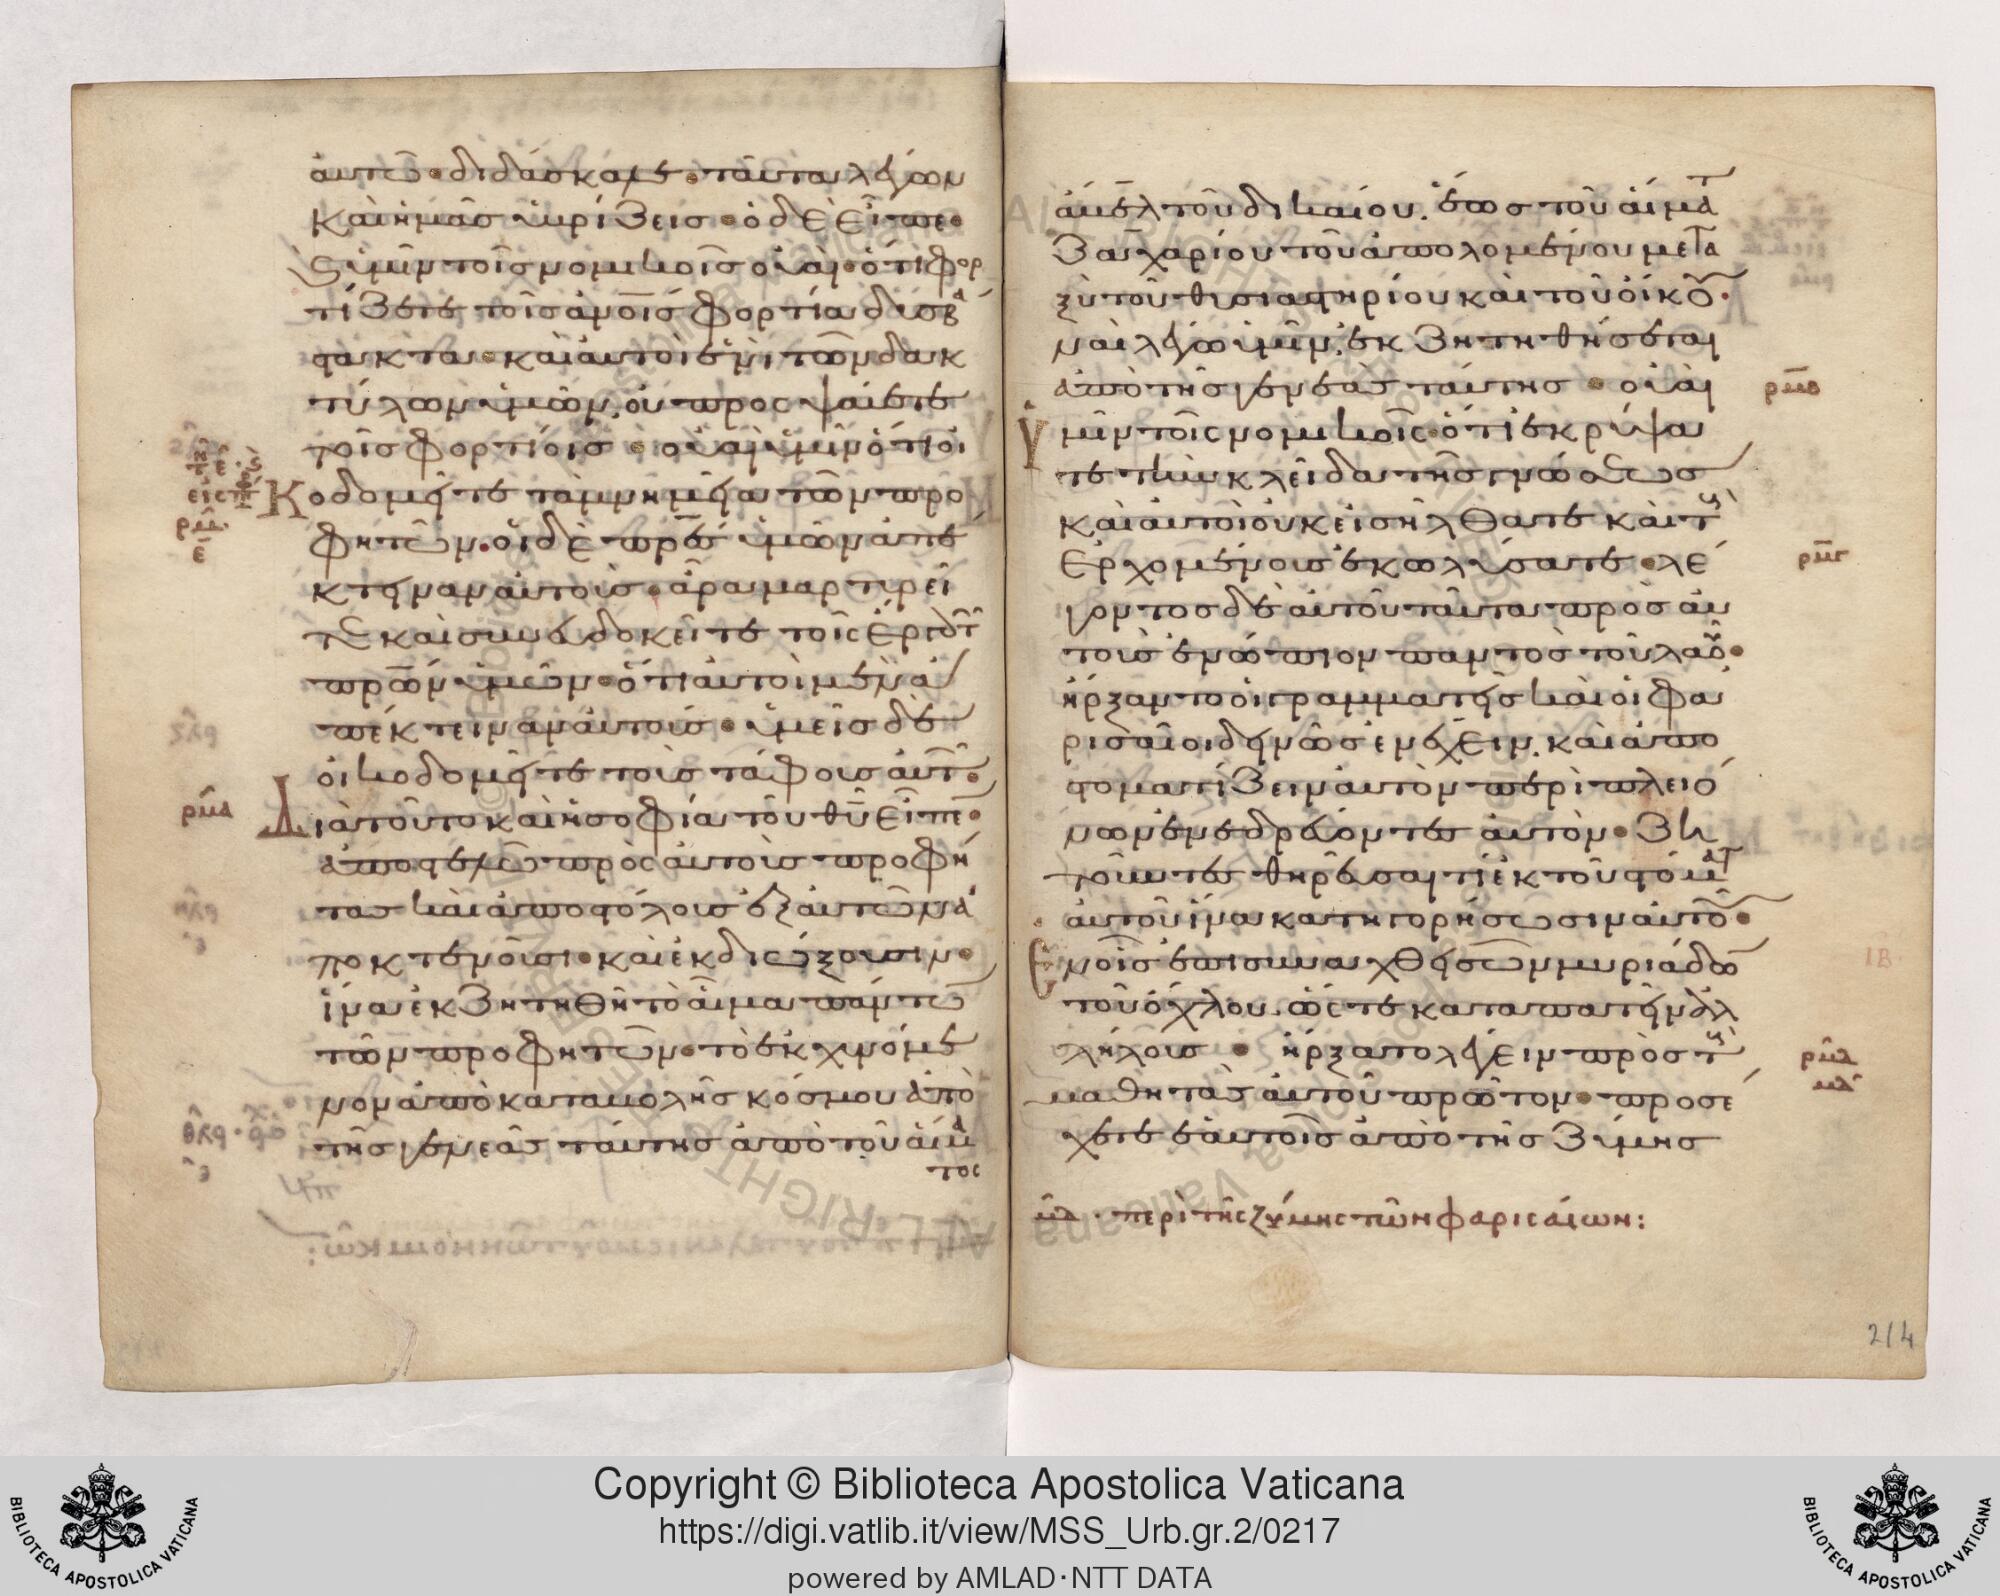 αὐτῶ· διδάσκαλε· ταῦτα λέγων
καὶ ἡμᾶς ὑβρίζεις· ὁ δὲ εἶπε·
ϛ ὑμῖν τοῖς νομικοῖς οὐαί· ὅτι φορ
τίζετε τοὺς ἀνο̅υ̅ς φορτία δυσβά
στακτα· καὶ αὐτοὶ ἑνὶ τῶν δακ
τύλων ὑμῶν, οὐ προσψαύετε
τοῖς φορτίοις· οὐαὶ ὑμῖν ὅτι οἰ
κοδομεῖτε τὰ μνημεῖα τῶν προ
φητῶν· οἱ δὲ πρ̅ε̅ς ὑμῶν ἀπέ
κτειναν αὐτούς· ἄρα μαρτυρεῖ
τε καὶ συνευδοκεῖτε τοῖς ἔργοις τῶν
πρ̅ω̅ν ὑμῶν· ὅτι αὐτοὶ μὲν ἀ
πέκτειναν αὐτούς· ὑμεῖς δὲ
οἰκοδομεῖτε τοὺς τάφους αὐτῶν·
ρμα
Διὰ τοῦτο καὶ ἡ σοφία τοῦ θυ̅ εἶπε·
ἀποστελῶ πρὸς αὐτοὺς προφή
τας καὶ ἀποστόλους· ἐξ αὐτῶν ἀ
ποκτενοῦσι· καὶ ἐκδιώξουσιν·
ἵνα ἐκζητηθῆ τὸ αἷμα πάντων
τῶν προφητῶν· τὸ ἐκχυνόμε
νον ἀπὸ καταβολῆς κόσμου ἀπὸ
τῆς γενεᾶς ταύτης ἀπὸ τοῦ αἵμα
τος
ἄβελ τοῦ δικαίου, ἕως τοῦ αἵματ
Ζαχαρίου τοῦ ἀπολομένου μετα
ξὺ τοῦ θυσιαστηρίου καὶ τοῦ οἴκου·
ναὶ λέγω ὑμῖν, ἐκζητηθήσεται
ἀπὸ τῆς γενεᾶς ταύτης· οὐαὶ
ρμβ
ὑμῖν τοῖς νομικοῖς· ὅτι ἐκρύψα
τε τὴν κλεῖδα τῆς γνώσεως
καὶ αὐτοὶ οὐκ εἰσήλθατε καὶ τοὺς
εἰσερχομένους ἐκωλύσατε· λέ
ρμγ
γοντος δὲ αὐτοῦ ταῦτα πρὸς αὐ
τοὺς ἐνώπιον παντὸς τοῦ λαοῦ·
ἤρξαντο οἱ γραμματεῖς καὶ οἱ φα
ρισαῖοι δεινῶς ἐνέχειν, καὶ ἀπο
στοματίζειν αὐτὸν περὶ πλειό
νων ἐνεδρεύοντες αὐτὸν· ζη
τοῦντες θηρεῦσαί τι ἐκ τοῦ στόματ
αὐτοῦ ἵνα κατηγορήσωσιν αὐτοῦ·
Ἐν οἷς ἐπισυναχθεισῶν μυριάδων
τοῦ ὄχλου, ὥστε καταπατεῖν ἀλ
λήλους· ἤρξατο λέγειν πρὸς τοὺς
ρμδ
μαθητὰς αὐτοῦ πρῶτον· προσέ
χετε ἑαυτοῖς ἀπὸ τῆς ζύμης
μδ· περὶ τῆς ζύμης τῶν φαρισαίων:
214
Copyright © Biblioteca Apostolica Vaticana
https://digi.vatlib.it/view/MSS_Urb.gr.2/0217
powered by AMLAD·NTT DATA
BIBLIOTECA APOSTOLICA VATICANA
BIBLIOTECA APOSTOLICA VATICANA